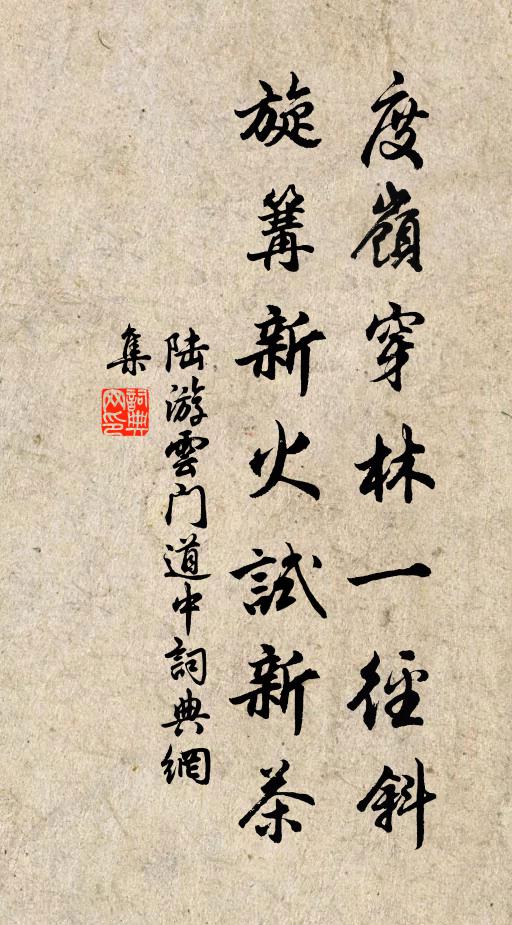 度嶺穿林一徑斜
旋篝新火試新茶
陸游雲门道中詞典網
集
詞典網印